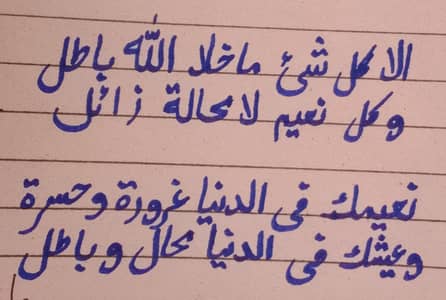 الا كل شئ ما خلا الله باطل
وكل نعيم لا محالة زائل
نعيمك فى الدنيا غرورة وحسرة
وعيشك فى الدنيا محال وباطل